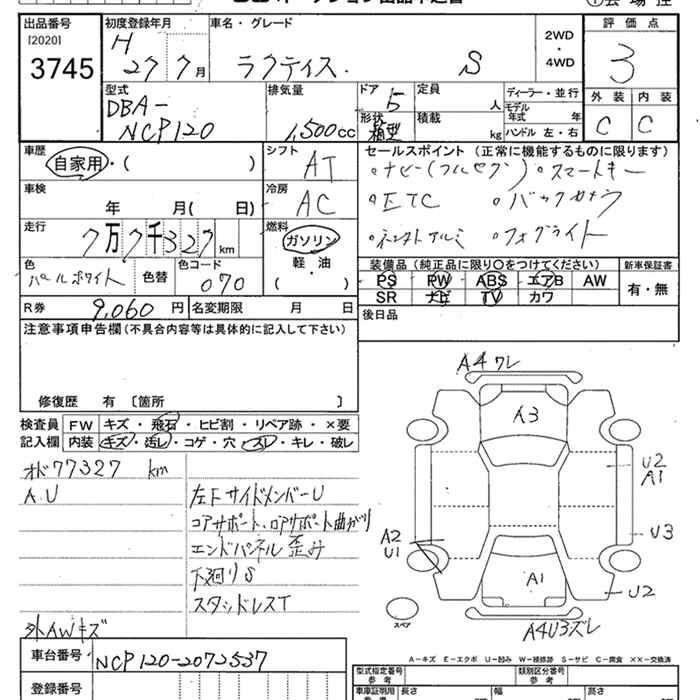 出品番号 初度登録年月 車名・グレード 2WD・4WD 評価点
[2020] H 27 7月 ラクティス S 3
3745
型式 排気量 ドア 5 定員 人 ディーラー・並行 外装 内装
DBA-NCP120 1,500cc 形状 箱型 積載 kg モデル年式 年 C C
ハンドル 左・右
車歴 シフト セールスポイント(正常に機能するものに限ります)
自家用・( ) AT ・ナビ(フルセグ) ・スマートキー
車検 冷房 ・ETC ・バックカメラ
年 月( 日) AC
走行 燃料 フォグライト
7万7千327km ガソリン・軽油 ( )
色 色替 色コード 装備品(純正品に限り○をつけてください) 新車保証書
パールホワイト 070 PS PW ABS エアB AW 有・無
SR ナビ TV カワ
R券 9,060円 名変期限 月 日 後日品
注意事項申告欄(不具合内容等は具体的に記入して下さい)
修復歴 有〔箇所 〕
検査員 FW キズ・飛石・ヒビ割・リペア跡・×要
記入欄 内装 キズ・汚レ・コゲ・穴・スレ・キレ・破レ
オド77327km
A.U 左Fサイドメンバー U
コアサポート、ロアサポート曲がり
エンドパネル歪み
下廻りS
スタッドレスT
外AWキズ
車台番号 NCP120-2072537
登録番号
A4ワレ
A3
U2
A1
A2
U1
U3
A1
U2
A4U3ズレ
スペア
A-キズ E-エクボ U-凹み W-補修跡 S-サビ C-腐食 XX-交換済
型式指定番号 参考 類別区分番号 参考
車庫証明用 参考 長さ 幅 高さ